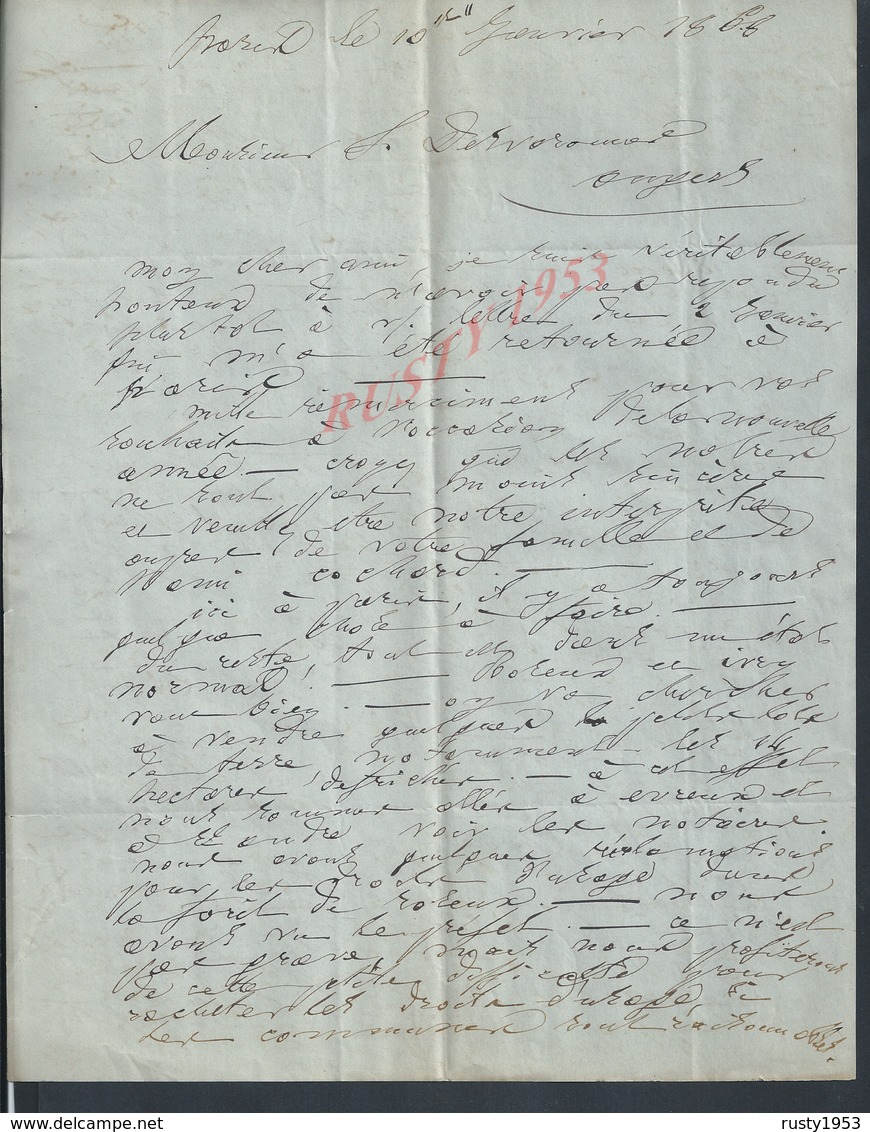 le 10 Janvier 1868
Monsieur
angers
mon cher ami, je suis véritablement
honteux de n'avoir pas repondu
plus tot à v/. lettre du 2 Janvier
qui m'a été retournée à
paris
mille remerciments pour vos
souhaits à l'occasion de la nouvelle
année. — croyez que les notres
ne sont pas moins sincères
et veuillez etre notre interprète
aupres de votre famille et de
l'ami cochard. —
ici à paris, il y a toujours
quelque chose à faire. —
du reste, tout est dans un état
normal. — et ivry
vont bien. — on va chercher
à vendre quelques petits lots
de terre, notamment les 14
hectares défrichés. — à cet effet
nous sommes allés à evreux et
à St andré voir les notaires.
nous avons quelques réclamations
pour les droits d'usage dans
la foret de — nous
avons vu le préfet. — ce n'est
pas grave, mais nous profiterons
de cette petite difficulté pour
racheter les droits d'usage, si
les communes sont raisonnables.
RUSTY 1953
delcampe.net
rusty1953